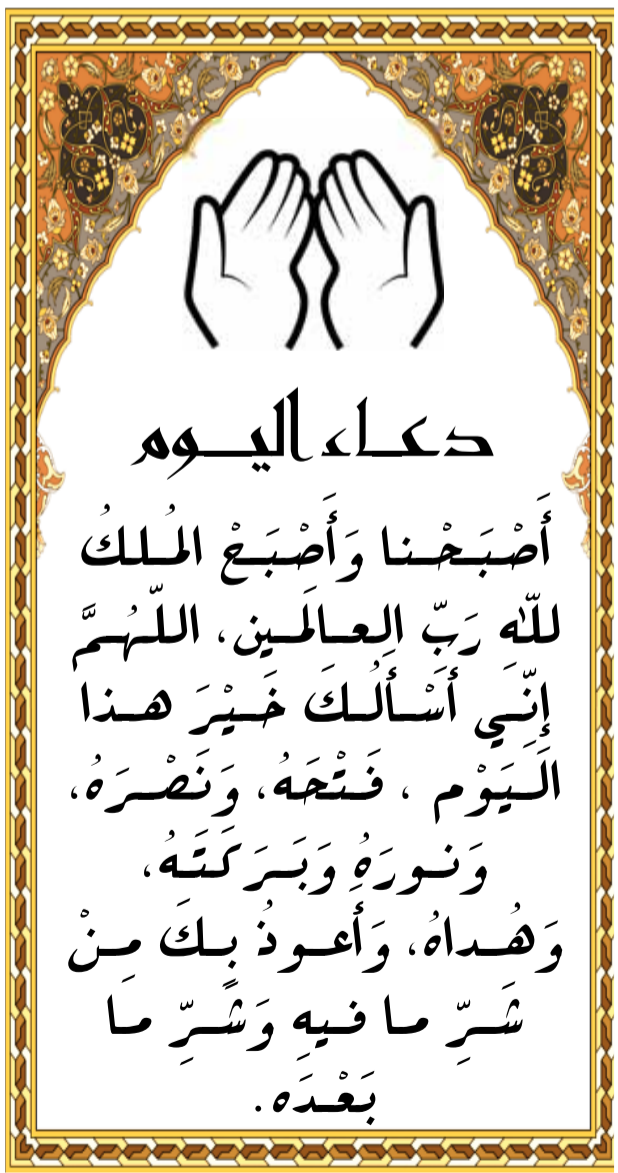 دعاء اليوم
أَصْبَحْنا وَأَصْبَحْ المُلكُ
للّهِ رَبِّ العالَمين، اللّهُمَّ
إِنِّي أَسْأَلُكَ خَيْرَ هذا
الَيَوْم ، فَتْحَهُ، وَنَصْرَهُ،
وَنورَهُ وَبَرَكَتَهُ،
وَهُداهُ، وَأَعوذُ بِكَ مِنْ
شَرِّ ما فيهِ وَشَرِّ ما
بَعْدَه.